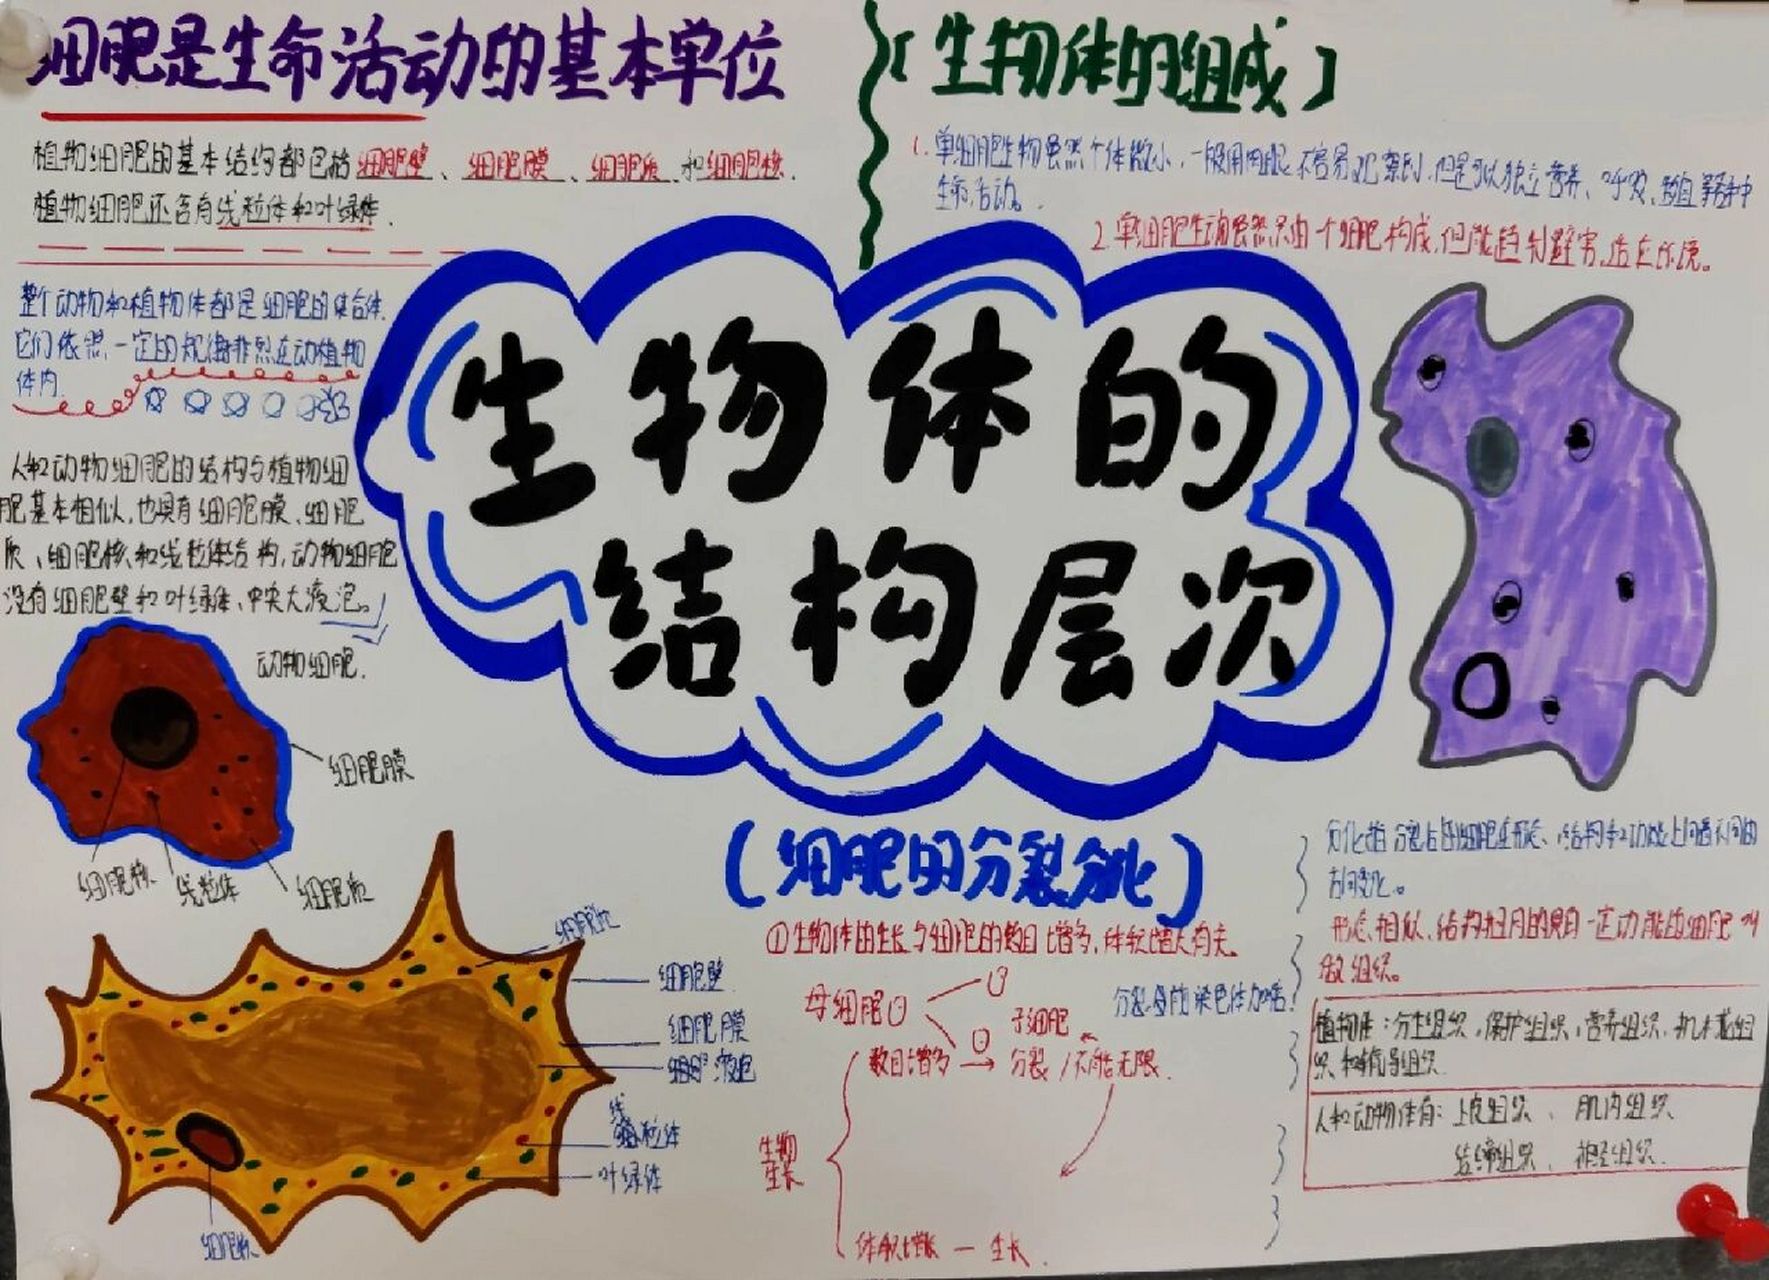 细胞是生命活动的基本单位
植物细胞的基本结构都包括细胞壁、细胞膜、细胞质和细胞核.
植物细胞还含有线粒体和叶绿体.
整个动物和植物体都是细胞的集合体.
它们依照一定的规律排列在动植物
体内.
人和动物细胞的结构与植物细
胞基本相似,也具有细胞膜、细胞
质、细胞核和线粒体结构,动物细胞
没有细胞壁和叶绿体、中央大液泡。
动物细胞.
细胞膜
细胞核
线粒体
细胞质
细胞壁
细胞膜
液泡
线粒体
叶绿体
细胞核
【生物体的组成】
1.单细胞生物虽然个体微小,一般用肉眼不容易观察到,但是可以独立营养、呼吸、殖
生命活动。
2.单细胞生动虽然只由一个细胞构成,但能趋利避害,适应环境。
生物体的
结构层次
(细胞的分裂分化)
①生物体的生长与细胞的数目增多,体积增大有关。
母细胞
子细胞
分裂 染色体加倍
数目增多→分裂/不能无限.
生物
生长
体积增长—生长.
分化指分裂后的细胞在形态、结构和功能上向着不同的
方向变化。
形态相似、结构相同的具有一定功能的细胞叫
做组织。
植物体:分生组织,保护组织,营养组织,机械组
织和输导组织.
人和动物体有:上皮组织、肌肉组织
结缔组织、神经组织.